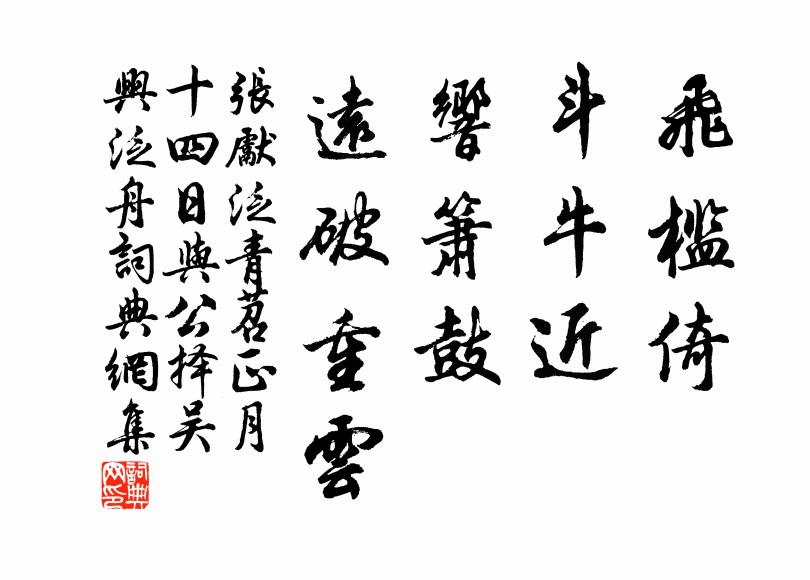 飛檻倚
斗牛近
響簫鼓
遠破重雲
張獻泛青苕正月
十四日與公择吴
興泛舟詞典網集
詞典
网印